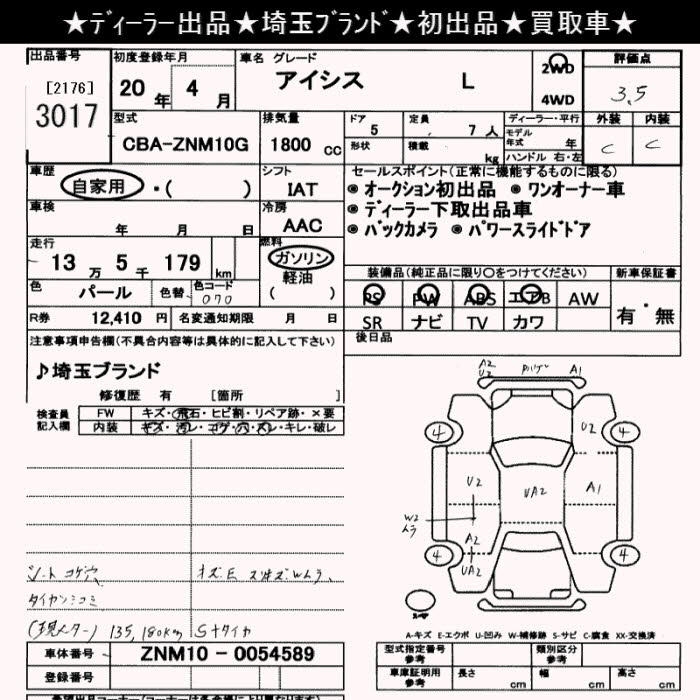 ★ディーラー出品★埼玉ブランド★初出品★買取車★
出品番号 初度登録年月 車名 グレード 評価点
[2176] 20年 4月 アイシス L 2WD 3.5
3017 4WD
型式 排気量 ドア 定員 ディーラー・平行 外装 内装
CBA-ZNM10G 1800cc 5 7人 モデル年式 年 C C
形状 積載 kg ハンドル 右・左
車歴 シフト セールスポイント(正常に機能するものに限る)
自家用・( ) IAT ◉オークション初出品 ◉ワンオーナー車
車検 冷房 ◉ディーラー下取出品車
年 月 日 AAC ◉バックカメラ ◉パワースライドドア
走行 燃料
13万5千179km ガソリン 装備品(純正品に限り○をつけてください) 新車保証書
軽油
色 パール 色替 色コード 070 ( ) PS PW ABS エアB AW 有・無
R券 12,410円 名変通知期限 月 日 SR ナビ TV カワ
注意事項申告欄(不具合内容等は具体的に記入して下さい) 後日品
♪埼玉ブランド
修復歴 有 [箇所 ]
検査員 FW キズ・飛石・ヒビ割・リペア跡・×要
記入欄 内装 キズ・汚レ・コゲ・穴・スレ・キレ・破レ
A2 U2 A1
4 U2 4
U2 UA2 A1
W2 ムラ
A2 UA2
4 4
シートコゲ穴
(現メーター)135,180km Sナタイヤ
A-キズ E-エクボ U-凹み W-補修跡 S-サビ C-腐食 XX-交換済
車体番号 ZNM10-0054589 型式指定番号 参考 類別区分 参考
登録番号 車庫証明用 参考 長さ cm 幅 cm 高さ cm